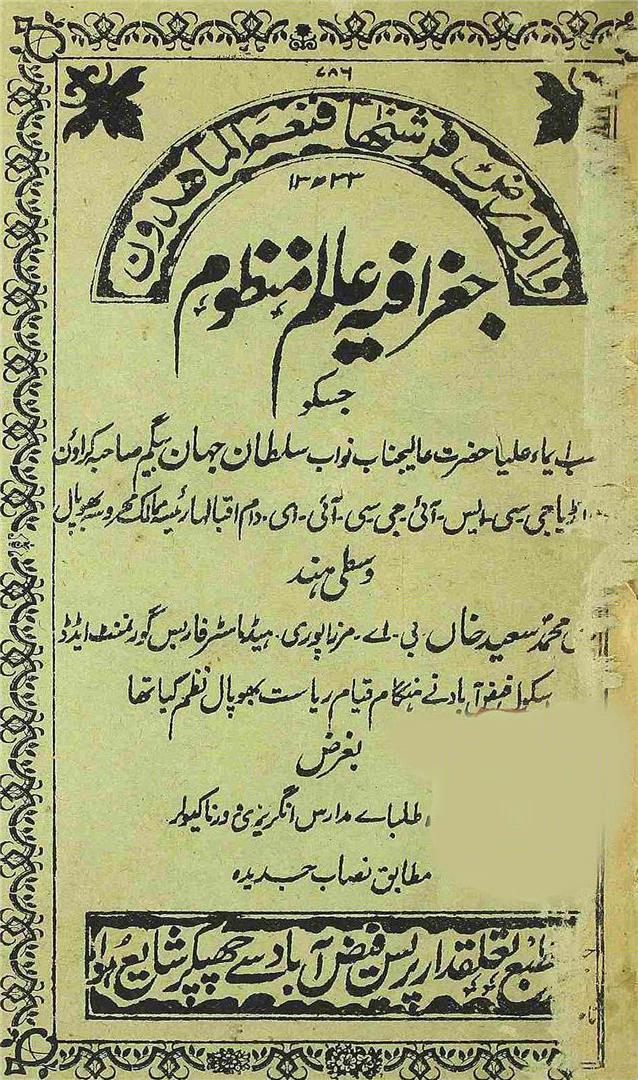 ٧٨٦
والارض فرشنٰها فنعم الماهدون
١٣٣٣
جغرافیہ عالم منظوم
جسکو
ایماء علیا حضرت عالیجناب نواب سلطان جہان بیگم صاحبہ کراؤن
انڈیا جی۔سی۔ایس۔آئی۔جی۔سی۔آئی۔ای۔دام اقبالہا رئیسہ ممالک محروسہ بھوپال
وسطی ہند
محمد سعید خاں بی۔اے۔مرزاپوری۔ہیڈماسٹر فاربس گورنمنٹ ایڈڈ
سکول فیض آباد نے ہنگام قیام ریاست بھوپال نظم کیا تھا
بغرض
طلباے مدارس انگریزی و ورناکیولر
مطابق نصاب جدیدہ
مطبع تعلقدار پریس فیض آباد سے چھپکر شایع ہوا